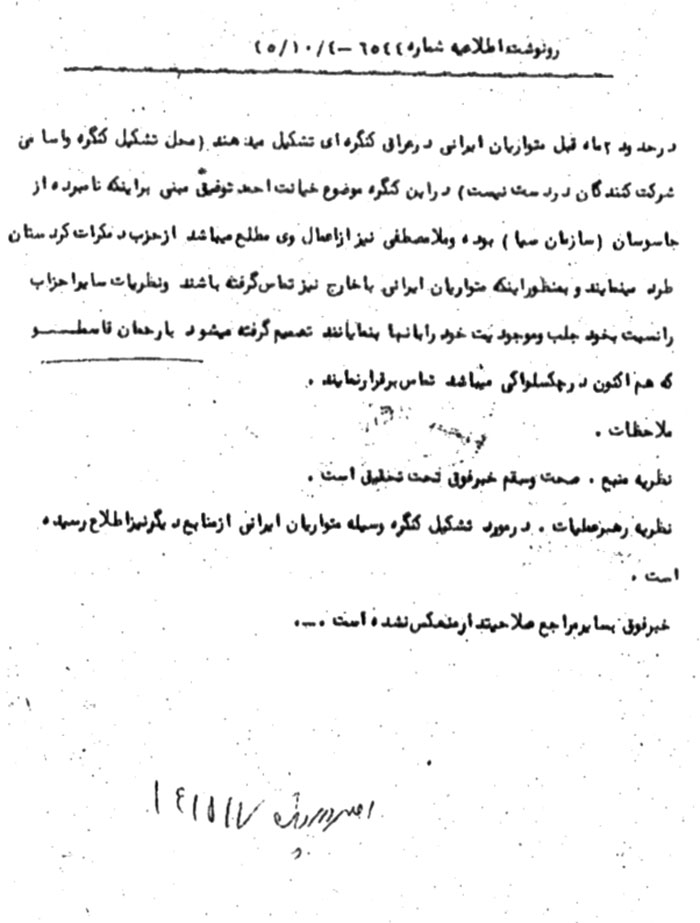 رونوشت اطلاعیه شماره ۶۵۴۴ – ۴۵/۱۰/۴
در حدود ۲ ماه قبل متواریان ایرانی در عراق کنگره ای تشکیل میدهند (محل تشکیل کنگره واسامی
شرکت کنندگان در دست نیست) در این کنگره موضوع خیانت احمد توفیق مبنی براینکه نامبرده از
جاسوسان (سازمان سیا) بوده وملامصطفی نیز ازاعمال وی مطلع میباشد ازحزب دمکرات کردستان
طرد مینمایند و بمنظوراینکه متواریان ایرانی باخارج نیز تماس گرفته باشند ونظریات سایراحزاب
رانسبت بخود جلب وموجودیت خود رابآنها بنمایانند تصمیم گرفته میشود بارحمان قاسملو
که هم اکنون درچکسلواکی میباشد تماس برقرارنمایند .
ملاحظات .
نظریه منبع . صحت وسقم خبرفوق تحت تحقیق است .
نظریه رهبرعملیات . درمورد تشکیل کنگره وسیله متواریان ایرانی ازمنابع دیگرنیزاطلاع رسیده
است .
خبرفوق بسایرمراجع صلاحیتدارمنعکس نشده است . ...